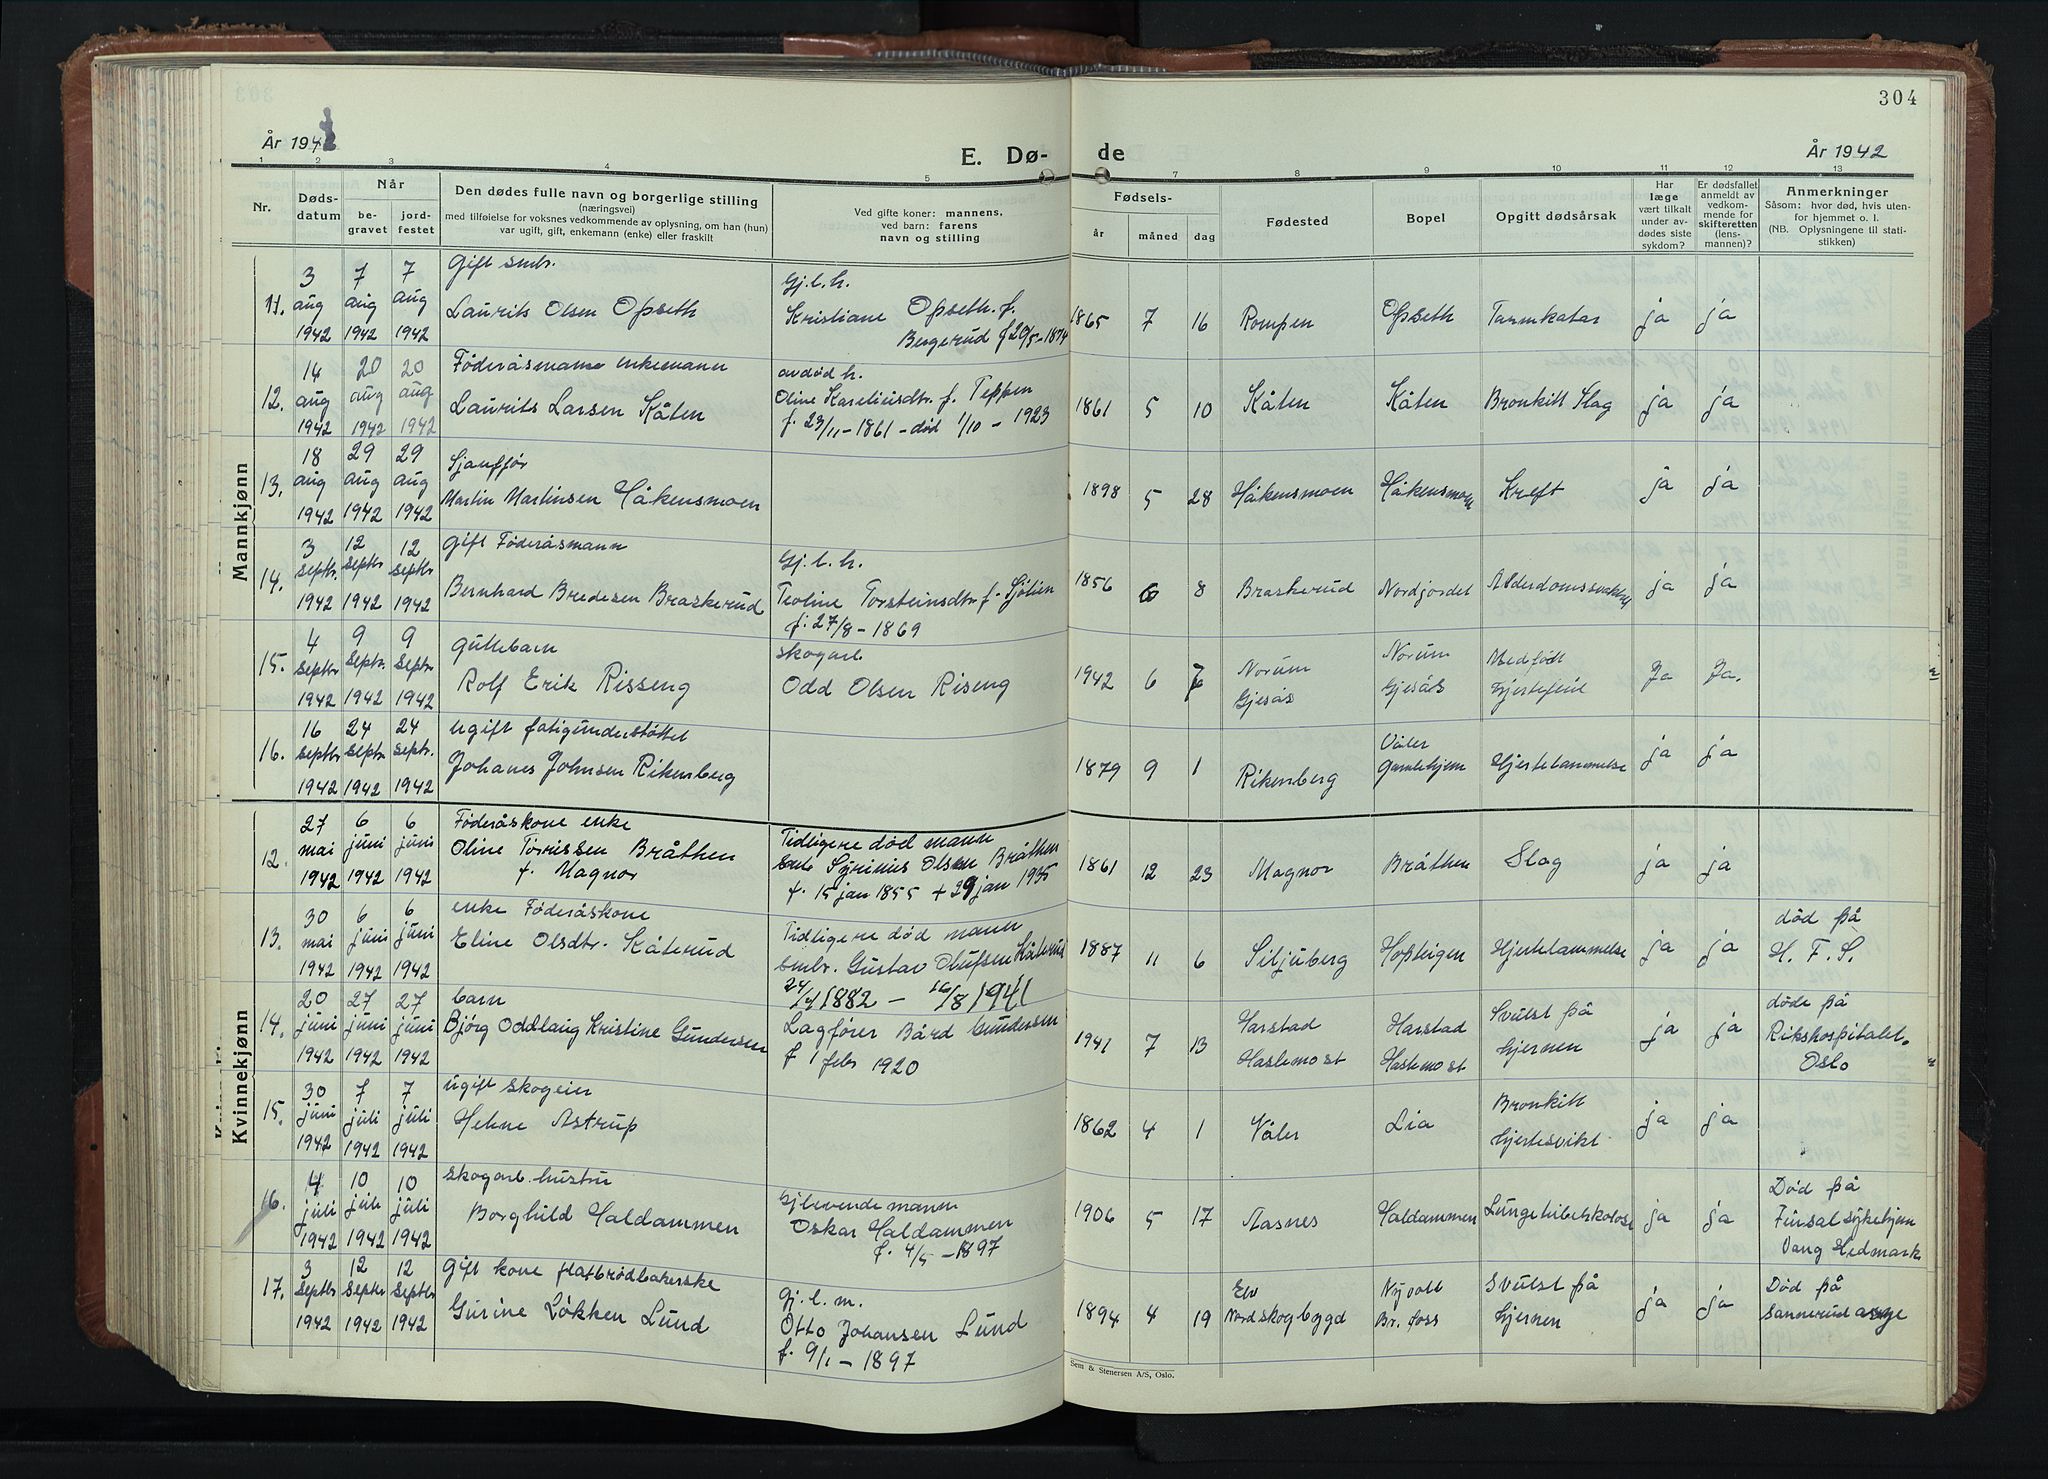 304
År 1942
E. Dø-
de
År 1942
1 2 3 4 5 7 8 9 10 11 12 13
Nr.
Døds-
datum
Når
be-
gravet
jord-
festet
Den dødes fulle navn og borgerlige stilling
(næringsvei)
med tilføielse for voksnes vedkommende av oplysning, om han (hun)
var ugift, gift, enkemann (enke) eller fraskilt
Ved gifte koner: mannens,
ved barn: farens
navn og stilling
Fødsels-
år måned dag
Fødested
Bopel
Opgitt dødsårsak
Har
læge
vært tilkalt
under av-
dødes siste
sykdom?
Er dødsfallet
anmeldt av
vedkom-
mende for
skifteretten
(lens-
mannen)?
Anmerkninger
Såsom: hvor død, hvis uten-
for hjemmet o. l.
(NB. Oplysningene til stati-
stikken)
Mannkjønn
11.
3 aug 1942
7 aug 1942
7 aug 1942
Gift smbr.
Laurits Olsen Opseth
Gj.l.h.
Kristiane Opseth f.
Bergerud f 20/5-1874
1865 7 16 Rompen Opseth Tarmkatar ja ja
12.
14 aug 1942
20 aug 1942
20 aug 1942
Føderåsmann enkemann
Laurits Larsen Kåten
avdød h.
Oline Kareliusdtr. f. Teppen
f. 23/11-1861 - død 1/10-1923
1861 5 10 Kåten Kåten Bronkitt Slag ja ja
13.
18 aug 1942
29 aug 1942
29 aug 1942
Sjauffør
Martin Martinsen Håkensmoen
1898 5 28 Håkensmoen Håkensmoen Kreft ja ja
14.
3 septbr 1942
12 septbr 1942
12 septbr 1942
gift Føderåsmann
Bernhard Bredesen Braskerud
Gj.l.h.
Teoline Torsteinsdtr f. Sjølien
f. 27/8-1869
1856 6 8 Braskerud Nordjordet Alderdomssvakhet ja ja
15.
4 septbr 1942
9 septbr. 1942
9 septbr 1942
guttebarn
Rolf Erik Risseng
skogarb.
Odd Olsen Riseng
1942 6 7
Norum
Gjesås
Norum
Gjesås
Medfødt
hjertefeil
Ja Ja.
16.
16 septbr 1942
24 septbr. 1942
24 septbr. 1942
ugift fatigunderstøttet
Johanes Johnsen Rikenberg
1879 9 1 Rikenberg
Våler
Gamlehjem
Hjertelammelse ja ja
Kvinnekjønn
12.
27 mai 1942
6 juni 1942
6 juni 1942
Føderåskone enke
Oline Torrissen Bråthen
f. Magnor
Tidligere død mann
smbr Syrinius Olsen Bråthen
f. 15 jan 1855 + 29 jan 1935
1861 12 23 Magnor Bråthen Slag ja ja
13.
30 mai 1942
6 juni 1942
6 juni 1942
enke Føderåskone
Eline Olsdtr. Kåterud
Tidligere død mann
smbr. Gustav Olufsen Kåterud
24/4 1882 - 16/8 1941
1887 11 6 Siljuberg Hopteigen Hjertelammelse ja ja
død på
H. F. S.
14.
20 juni 1942
27 juni 1942
27 juni 1942
barn
Bjørg Oddlaug Kristine Gundersen
Lagfører Bård Gundersen
f 1 febr 1920
1941 7 13
Harstad
Haslemo st
Harstad
Haslemo st
Svulst på
hjernen
ja ja
døde på
Rikshospitalet.
Oslo
15.
30 juni 1942
7 juli 1942
7 juli 1942
ugift skogeier
Helene Astrup
1862 4 1 Våler Lia
Bronkitt
hjertesvikt
ja ja
16.
4 juli 1942
10 juli 1942
10 juli 1942
skogarb. hustru
Borghild Haldammen
Gjlevende mann
Oskar Haldammen
f. 4/5-1897
1906 5 17 Aasnes Haldammen Lungetuberkolose ja ja
Død på
Finsal sykehjem
Vang Hedmark
17.
3 septbr 1942
12 septbr 1942
12 septbr 1942
Gift kone flatbrødbakerske
Gurine Løkken Lund
Gj.l.m.
Otto Johansen Lund
f. 9/1-1897
1894 4 19
Elv
Nordskogbygd
Nyvoll
Br.foss
Svulst på
hjernen
ja ja
Død på
Sannerud asyl
Sem & Stenersen A/S, Oslo.